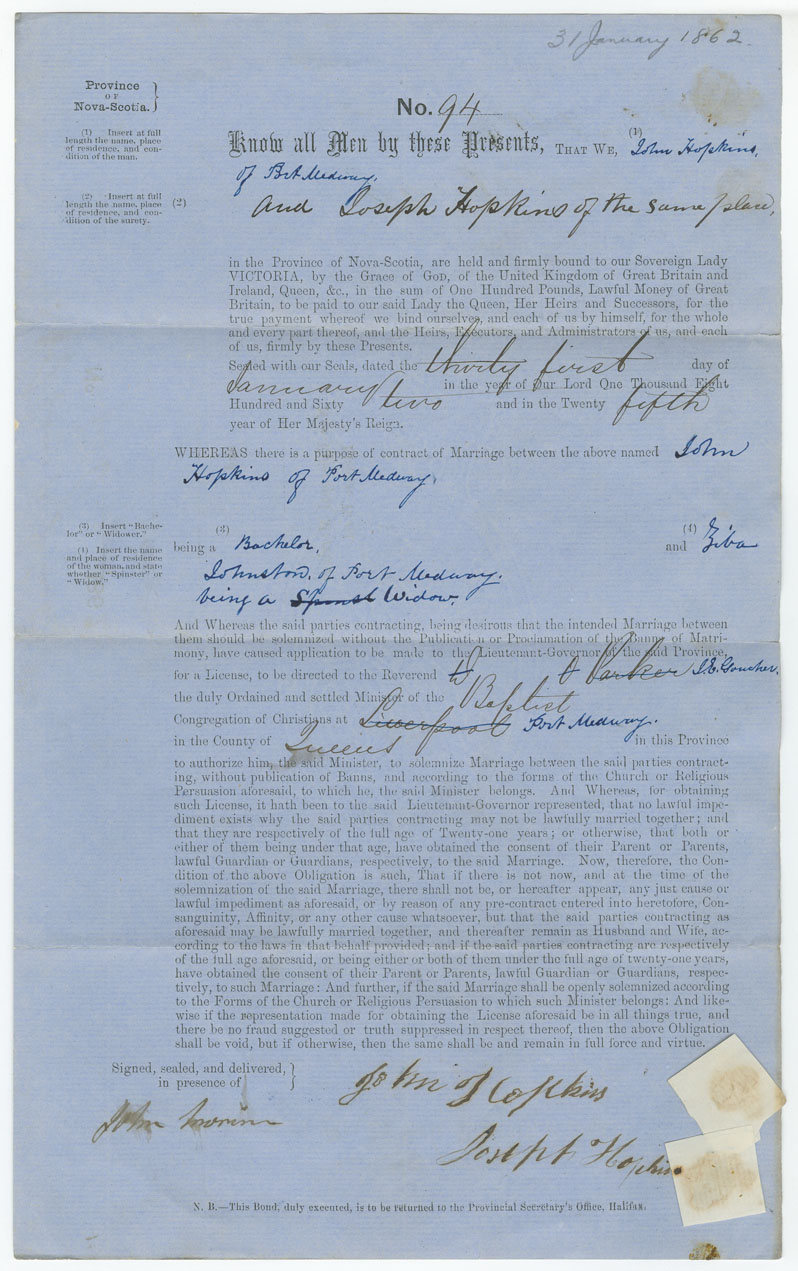 31 January 1862.
Province
OF
Nova-Scotia.
No. 94
(1) Insert at full
length the name, place
of residence, and con-
dition of the man.
Know all Men by these Presents, THAT WE, (1) John Hopkins,
of Port Medway,
(2) Insert at full
length the name, place
of residence, and con-
dition of the surety.
(2) and Joseph Hopkins of the same place,
in the Province of Nova-Scotia, are held and firmly bound to our Sovereign Lady
VICTORIA, by the Grace of GOD, of the United Kingdom of Great Britain and
Ireland, Queen, &c., in the sum of One Hundred Pounds, Lawful Money of Great
Britain, to be paid to our said Lady the Queen, Her Heirs and Successors, for the
true payment whereof we bind ourselves, and each of us by himself, for the whole
and every part thereof, and the Heirs, Executors, and Administrators of us, and each
of us, firmly by these Presents.
Sealed with our Seals, dated the thirty first day of
January in the year of Our Lord One Thousand Eight
Hundred and Sixty two and in the Twenty fifth
year of Her Majesty's Reign.
WHEREAS there is a purpose of contract of Marriage between the above named John
Hopkins of Port Medway,
(3) Insert "Bache-
lor" or "Widower."
(4) Insert the name
and place of residence
of the woman, and state
whether "Spinster" or
"Widow."
(3) (4)
being a Bachelor, and Ziba
Johnston, of Port Medway.
being a Spinst Widow.
And Whereas the said parties contracting, being desirous that the intended Marriage between
them should be solemnized without the Publication or Proclamation of the Banns of Matri-
mony, have caused application to be made to the Lieutenant-Governor of the said Province,
for a License, to be directed to the Reverend Parker I.E. Goucher.
the duly Ordained and settled Minister of the Baptist
Congregation of Christians at Liverpool Port Medway.
in the County of Queens in this Province
to authorize him, the said Minister, to solemnize Marriage between the said parties contract-
ing, without publication of Banns, and according to the forms of the Church or Religious
Persuasion aforesaid, to which he, the said Minister belongs. And Whereas, for obtaining
such License, it hath been to the said Lieutenant-Governor represented, that no lawful impe-
diment exists why the said parties contracting may not be lawfully married together; and
that they are respectively of the full age of Twenty-one years; or otherwise, that both or
either of them being under that age, have obtained the consent of their Parent or Parents,
lawful Guardian or Guardians, respectively, to the said Marriage. Now, therefore, the Con-
dition of the above Obligation is such, That if there is not now, and at the time of the
solemnization of the said Marriage, there shall not be, or hereafter appear, any just cause or
lawful impediment as aforesaid, or by reason of any pre-contract entered into heretofore, Con-
sanguinity, Affinity, or any other cause whatsoever, but that the said parties contracting as
aforesaid may be lawfully married together, and thereafter remain as Husband and Wife, ac-
cording to the laws in that behalf provided; and if the said parties contracting are respectively
of the full age aforesaid, or being either or both of them under the full age of twenty-one years,
have obtained the consent of their Parent or Parents, lawful Guardian or Guardians, respec-
tively, to such Marriage: And further, if the said Marriage shall be openly solemnized according
to the Forms of the Church or Religious Persuasion to which such Minister belongs: And like-
wise if the representation made for obtaining the License aforesaid be in all things true, and
there be no fraud suggested or truth suppressed in respect thereof, then the above Obligation
shall be void, but if otherwise, then the same shall be and remain in full force and virtue.
Signed, sealed, and delivered,
in presence of
John Hopkins
John
Joseph Hopkins
N. B.—This Bond, duly executed, is to be returned to the Provincial Secretary's Office, Halifax.